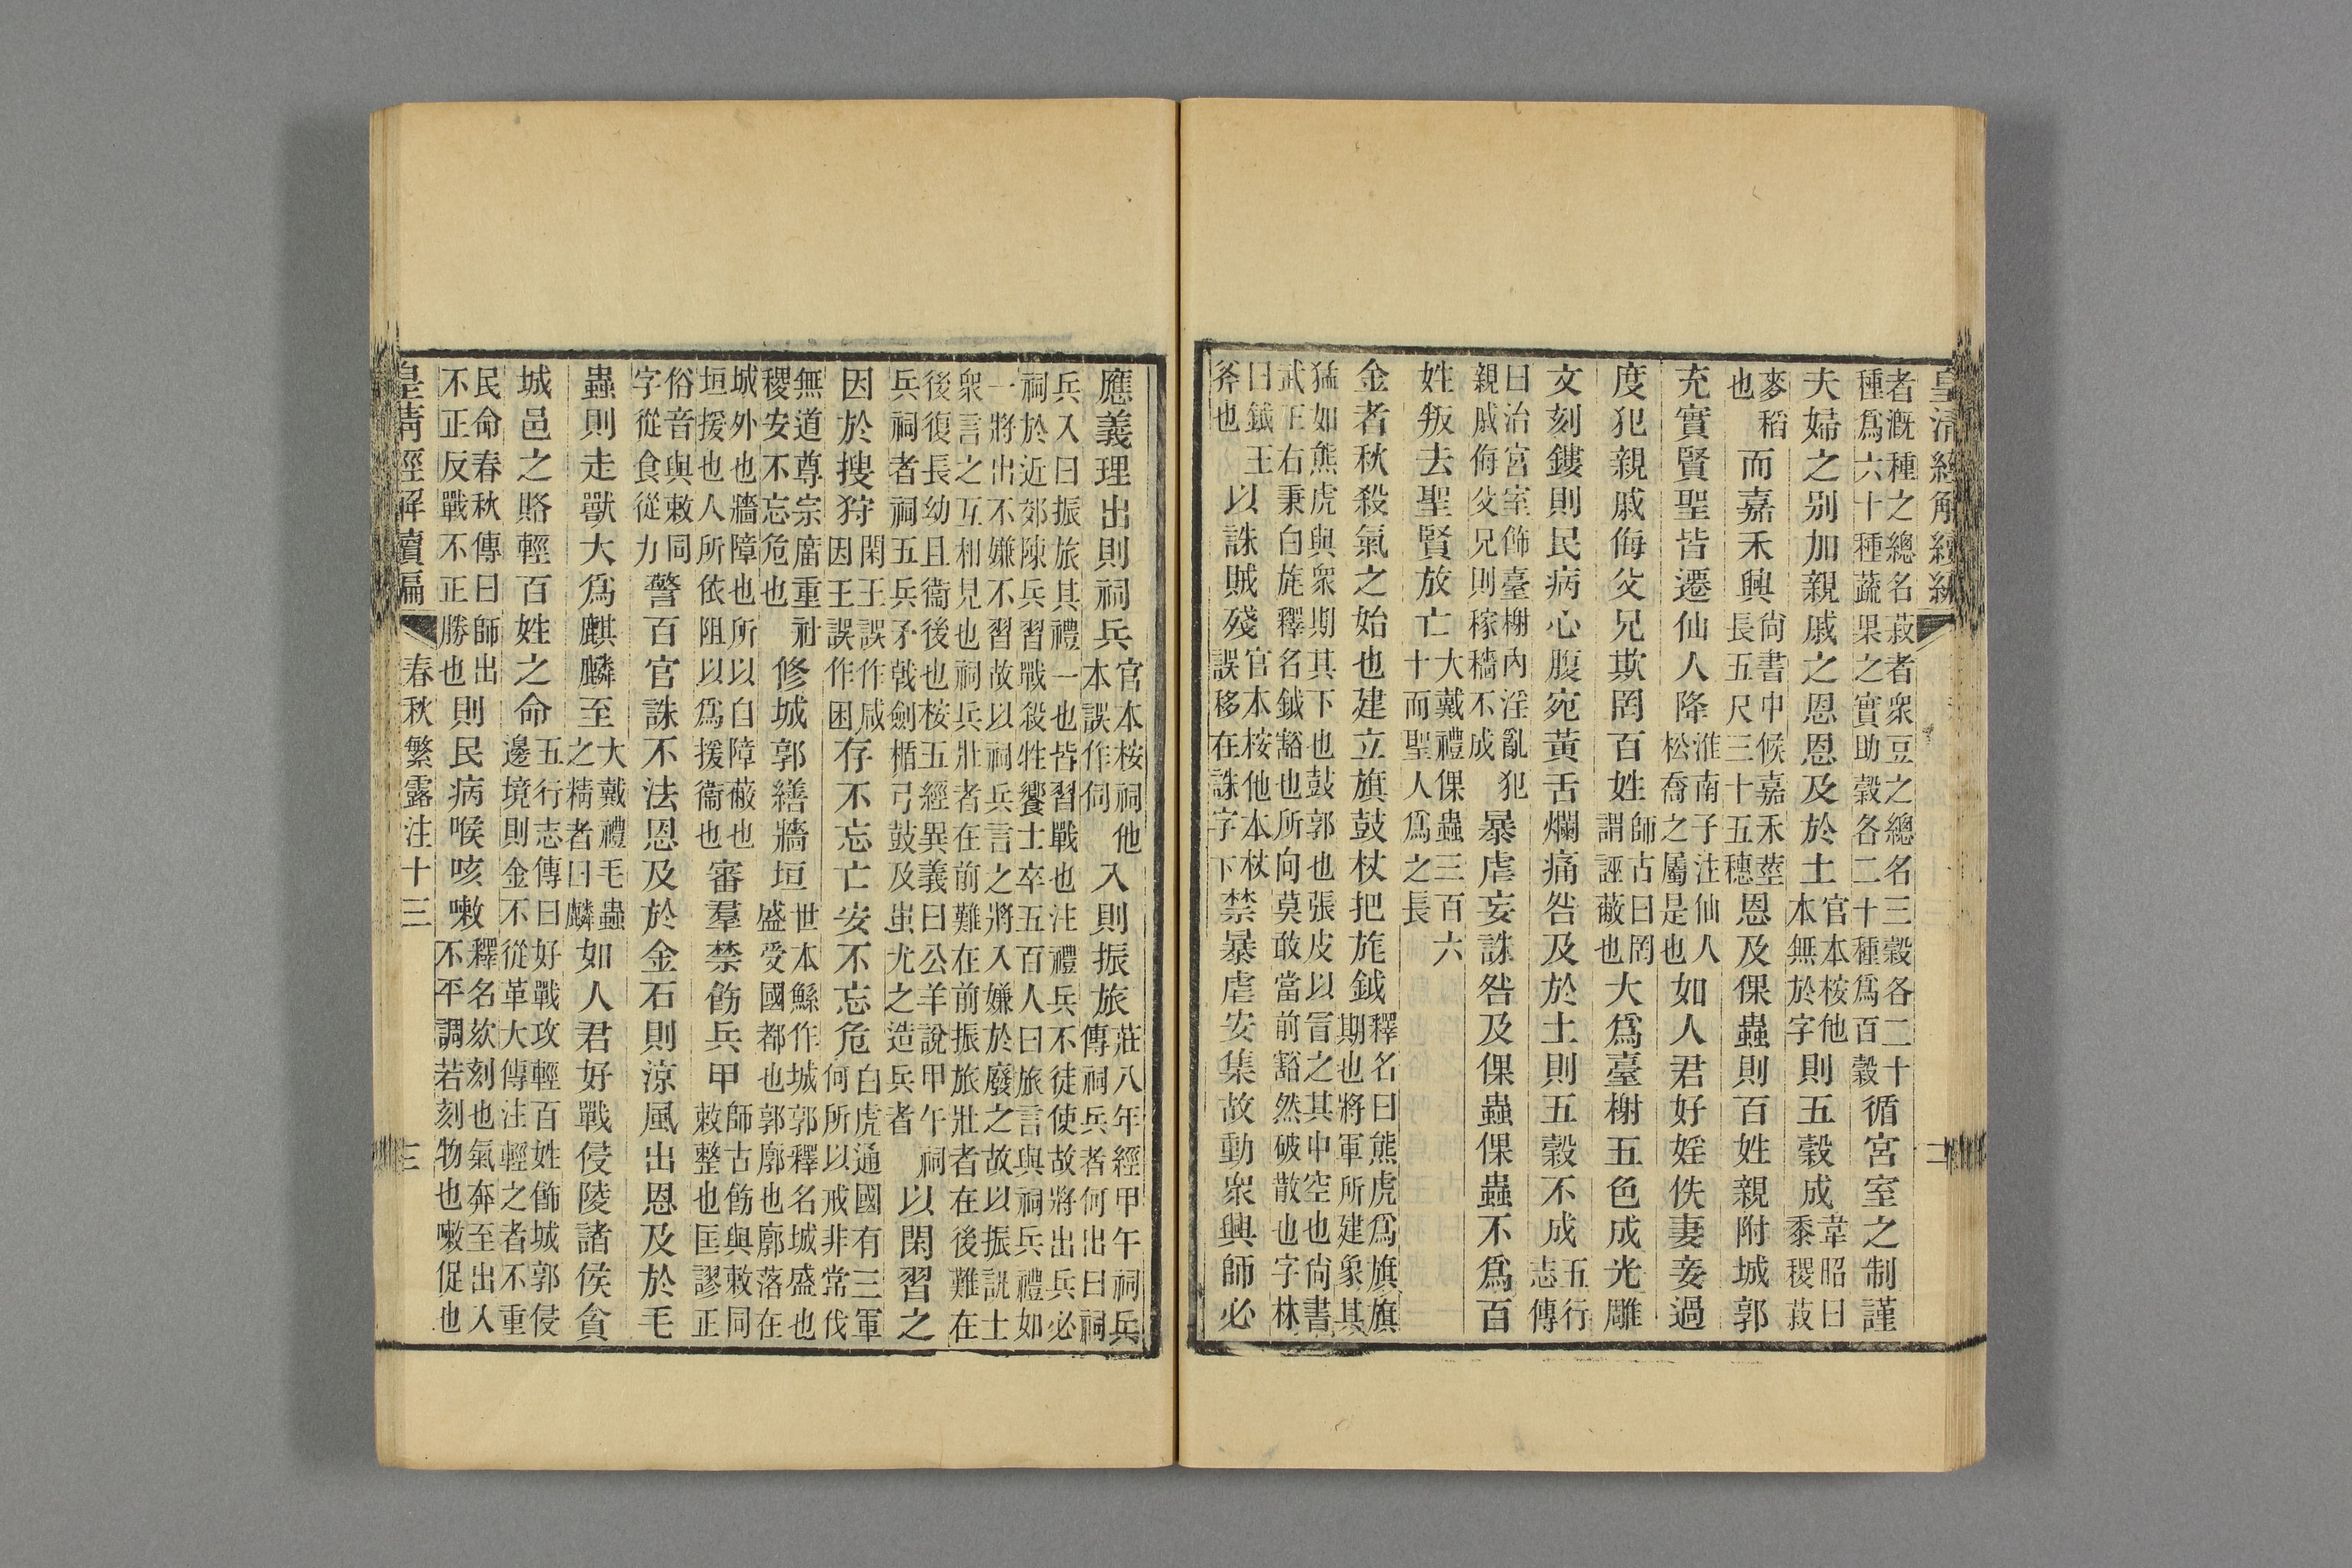 皇清經解續編 二
者漑種之總名菽者衆豆之總名三穀各二十種爲六十種蔬果之實助穀各二十種爲百穀循宮室之制謹
夫婦之别加親戚之恩恩及於土官本桉他本無於字則五穀成韋昭曰黍稷菽
麥稻也而嘉禾興尙書中候嘉禾莖長五尺三十五穗恩及倮蟲則百姓親附城郭
充實賢聖皆遷仙人降淮南子注仙人松喬之屬是也如人君好婬佚妻妾過
度犯親戚侮父兄欺罔百姓師古曰罔謂誣蔽也大爲臺榭五色成光雕
文刻鏤則民病心腹宛黃舌爛痛咎及於土則五穀不成五行志傳
曰治宮室飾臺榭內淫亂犯親戚侮父兄則稼穡不成暴虐妄誅咎及倮蟲倮蟲不爲百
姓叛去聖賢放亡大戴禮倮蟲三百六十而聖人爲之長
金者秋殺氣之始也建立旗鼓杖把旄鉞釋名曰熊虎爲旗旗期也將軍所建象其
猛如熊虎與衆期其下也鼓郭也張皮以冒之其中空也尙書武王右秉白旄釋名鉞豁也所向莫敢當前豁然破散也字林
曰鉞王斧也以誅賊殘官本桉他本杖誤移在誅字下禁暴虐安集故動衆興師必
應義理出則祠兵官本桉祠他本誤作伺入則振旅莊八年經甲午祠兵傳祠兵者何出曰祠
兵入曰振旅其禮一也皆習戰也注禮兵不徒使故將出兵必祠於近郊陳兵習戰殺牲饗士卒五百人曰旅言與祠兵禮如
一將出不嫌不習故以祠兵言之將入嫌於廢之故以振訊士衆言之互相見也祠兵壯者在前難在前振旅壯者在後難在
後復長幼且衞後也桉五經異義曰公羊說甲午祠兵祠者祠五兵矛戟劍楯弓鼓及蚩尤之造兵者以閑習之
因於搜狩閑王誤作咸因王誤作困存不忘亡安不忘危白虎通國有三軍何所以戒非常伐
無道尊宗庿重社稷安不忘危也修城郭繕牆垣世本鯀作城郭釋名城盛也盛受國都也郭廓也廓落在
城外也牆障也所以自障蔽也垣援也人所依阻以爲援衞也審羣禁飭兵甲師古飭與敕同敕整也匡謬正
俗音與敕同字從食從力警百官誅不法恩及於金石則涼風出恩及於毛
蟲則走獸大爲麒麟至大戴禮毛蟲之精者曰麟如人君好戰侵陵諸侯貪
城邑之賂輕百姓之命五行志傳曰好戰攻輕百姓飾城郭侵邊境則金不從革大傳注輕之者不重
民命春秋傳曰師出不正反戰不正勝也則民病喉咳嗽釋名欬刻也氣奔至出入不平調若刻物也嗽促也
皇清經解續編 春秋繁露注十三 三